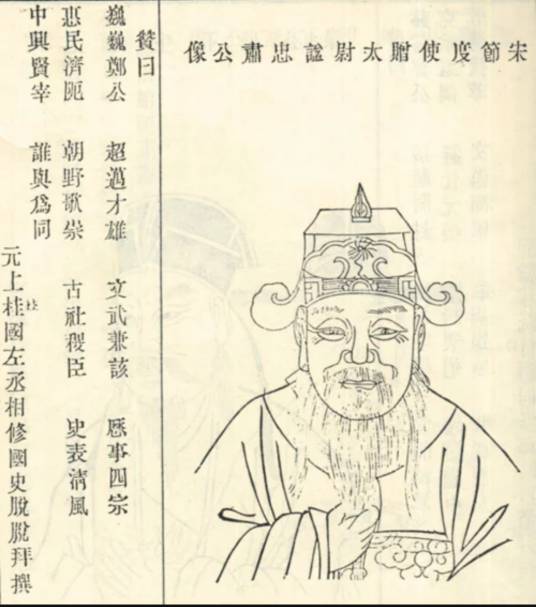 宋節度使贈太尉謚忠肅公像
贊曰
巍巍鄭公　超邁才雄　文武兼該　厯事四宗
惠民濟阨　朝野歌崇　古社稷臣　史表清風
中興賢宰　誰與爲同
元上桂國左丞相修國史脫脫拜撰
柱